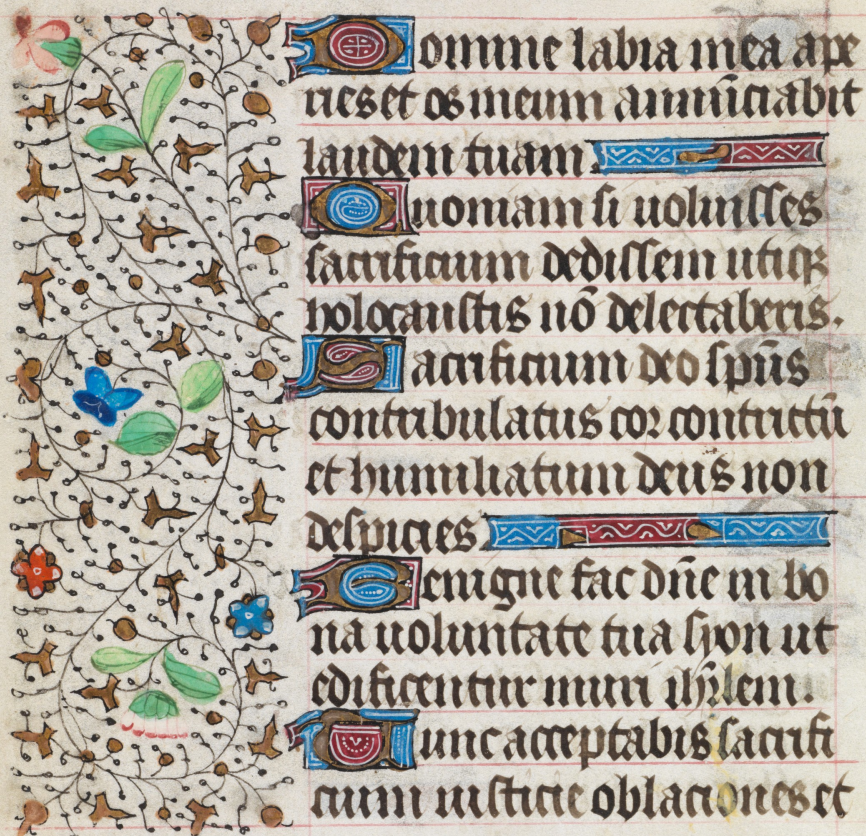 Domine labia mea ape
ries et os meum annūciabit
laudem tuam
Quoniam si uoluisses
sacrificium dedissem utiqꝫ
holocaustis nō delectaberis.
Sacrificium deo spūs
contribulatus cor contrictū
et humiliatum deus non
despicies
Benigne fac dūe in bo
na uoluntate tua syon ut
edificentur muri ihrlem.
Tunc acceptabis sacrifi
cium iusticie oblaciones et